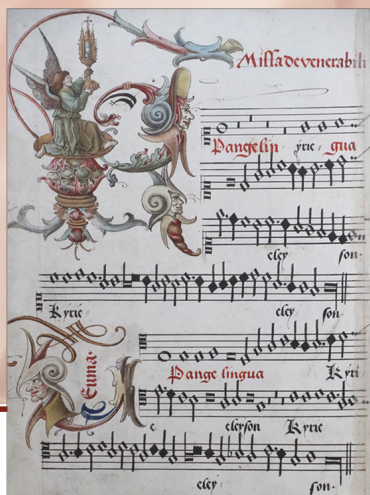 Missa de venerabili
Pangelin yrie gua
eley son.
Kyrie eley son.
Pange lingua Kyri
e eleyson Kyrie
eley son.